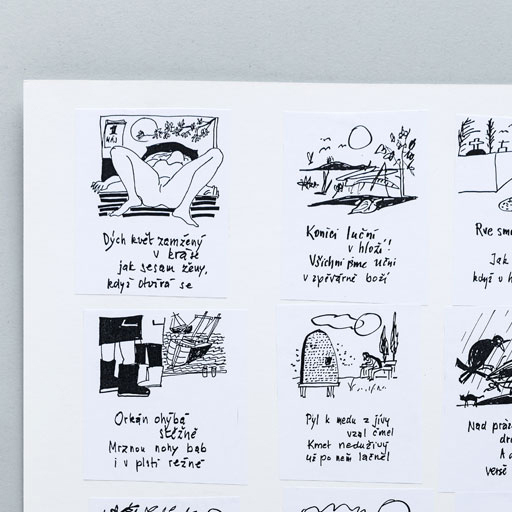 1
MÁJ
Dých květ zamžený
v kráse
jak sesam ženy,
když otvírá se
Koníci luční
v hloží!
Všichni jsme učni
v zpěvárně boží
Rve
Jak
když
Orkán ohýbá
stěžně
Mrznou nohy bab
i v plsti režné
Pyl k medu z jívy
vzal čmel
Kmet neduživý
už po něm lačněl
Nad